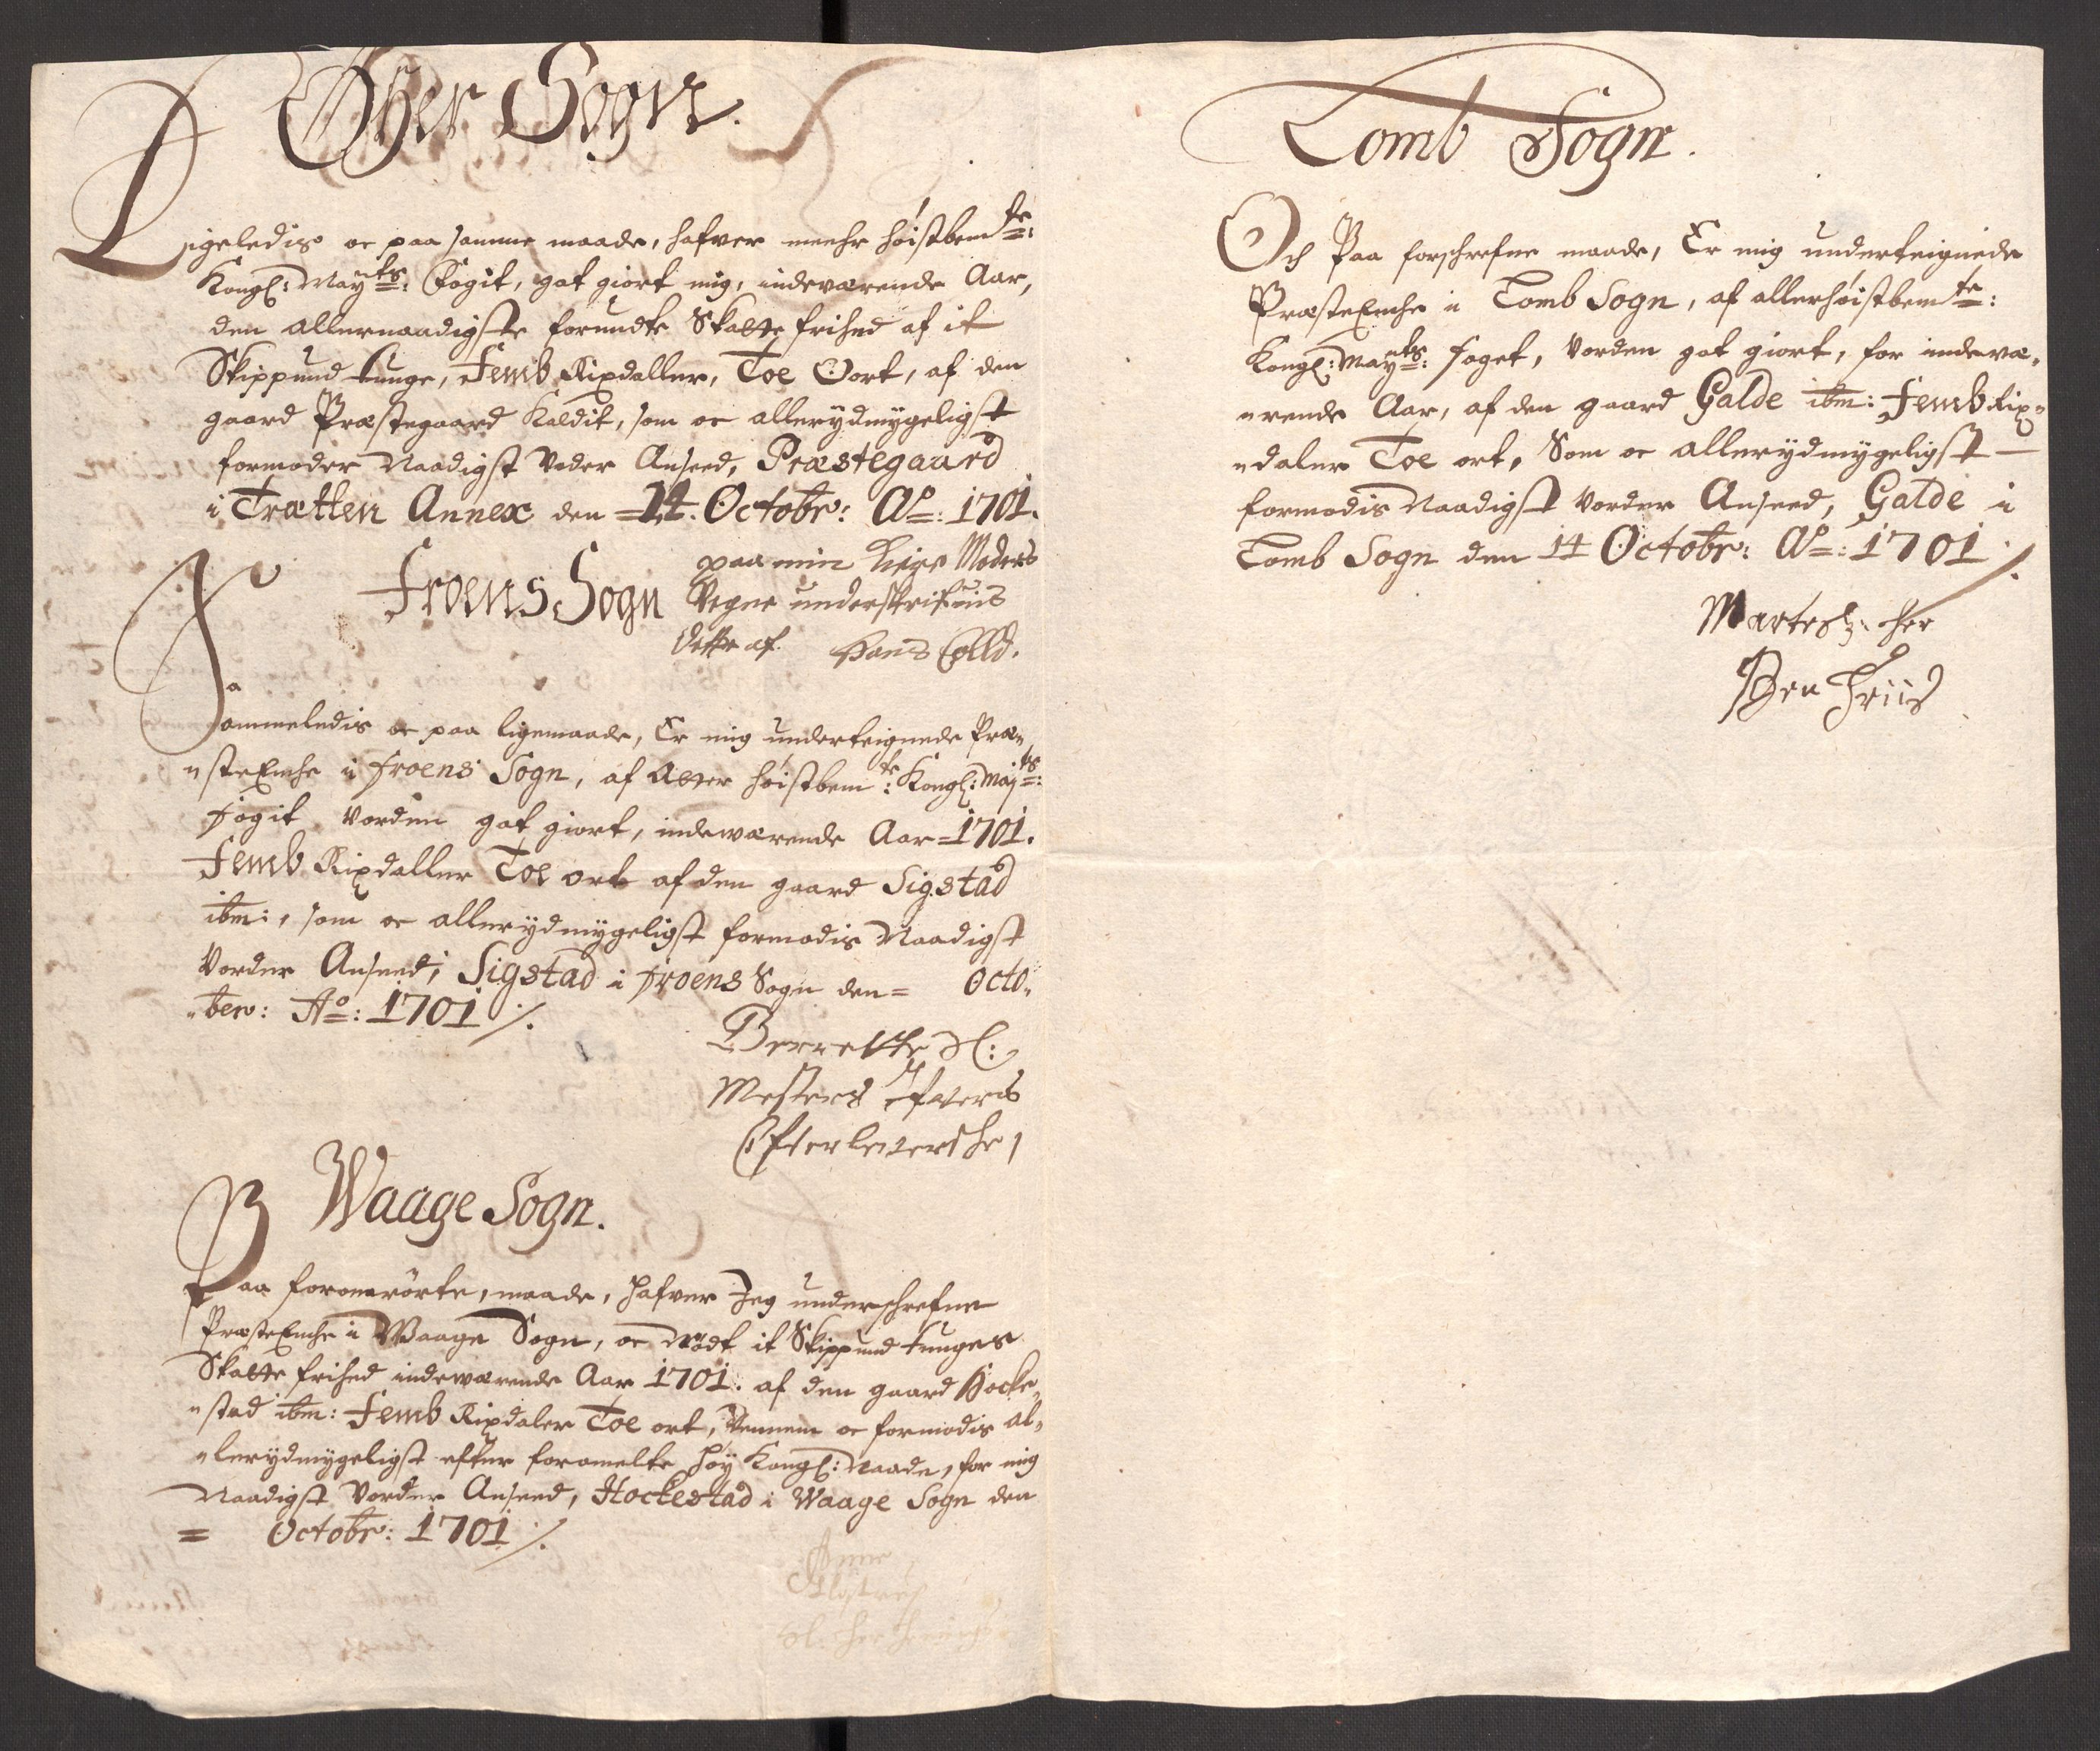 Øyer Sogn.
Ligeledis oc paa samme maade, hafver meehr höistbemte:
Kongl: Mayts: Fogit, got giort mig, indeværende Aar,
den allernaadigste forundte Skatte frihed af it
Skippund tunge, Femb Rixdaller, Toe Oort, af den
gaard Præstegaard Kaldit, som oc allerydmygeligst
formoder Naadigst Voder Anseed, Præstegaard
i Trætten Annex den 14. Octobr: Ao: 1701.
paa min kiere Moders
Vegne underskrifuis
dette af Hans Colld.
Froens Sogn
Sammeledis oc paa ligemaade, Er mig underteignede Præ„
„steEnche i Froens Sogn, af Aller höistbemte: Kongl: Majts:
Fogit vorden got giort, indewærende Aar 1701.
Femb Rixdaller Toe ort af den gaard Sigstad
ibm:, som oc allerydmygeligst formodis Naadigst
Vorder Anseed, Sigstad i Froens Sogn den= Octo„
„ber: Ao: 1701 ./.
Berrette Sl:
Mesters Ifvers
Efterleversche
Waage Sogn.
Paa foromrörte, maade, hafver Jeg underschrefne
PræsteEnche i Waage Sogn, oc Nödt it Skippund tunges
Skatte frihed indewærende Aar 1701. af den gaard Hocke„
„stad ibm: Femb Rixdaler Toe ort, Vennem oc formodis al„
„lerydmygeligst efter foromelte höy Kongl: Naade, for mig
Naadigst Vorder Anseed, Hockestad i Waage Sogn den
= Octobr: 1701 ./.
Anne
Sl: her
Lomb Sogn.
Och Paa forschrefne maade, Er mig underteignede
PræsteEnche i Lomb Sogn, af allerhöistbemte:
Kongl: Mayts: foget, Vorden got giort, for indewæ„
„rende Aar, af den gaard Galde ibm: Femb Rix„
„daler Toe ort, Som oc allerydmygeligst —
formodis Naadigst Vorder Anseed, Galde i
Lomb Sogn den 14 Octobr: Ao: 1701 ./.
her
Friis